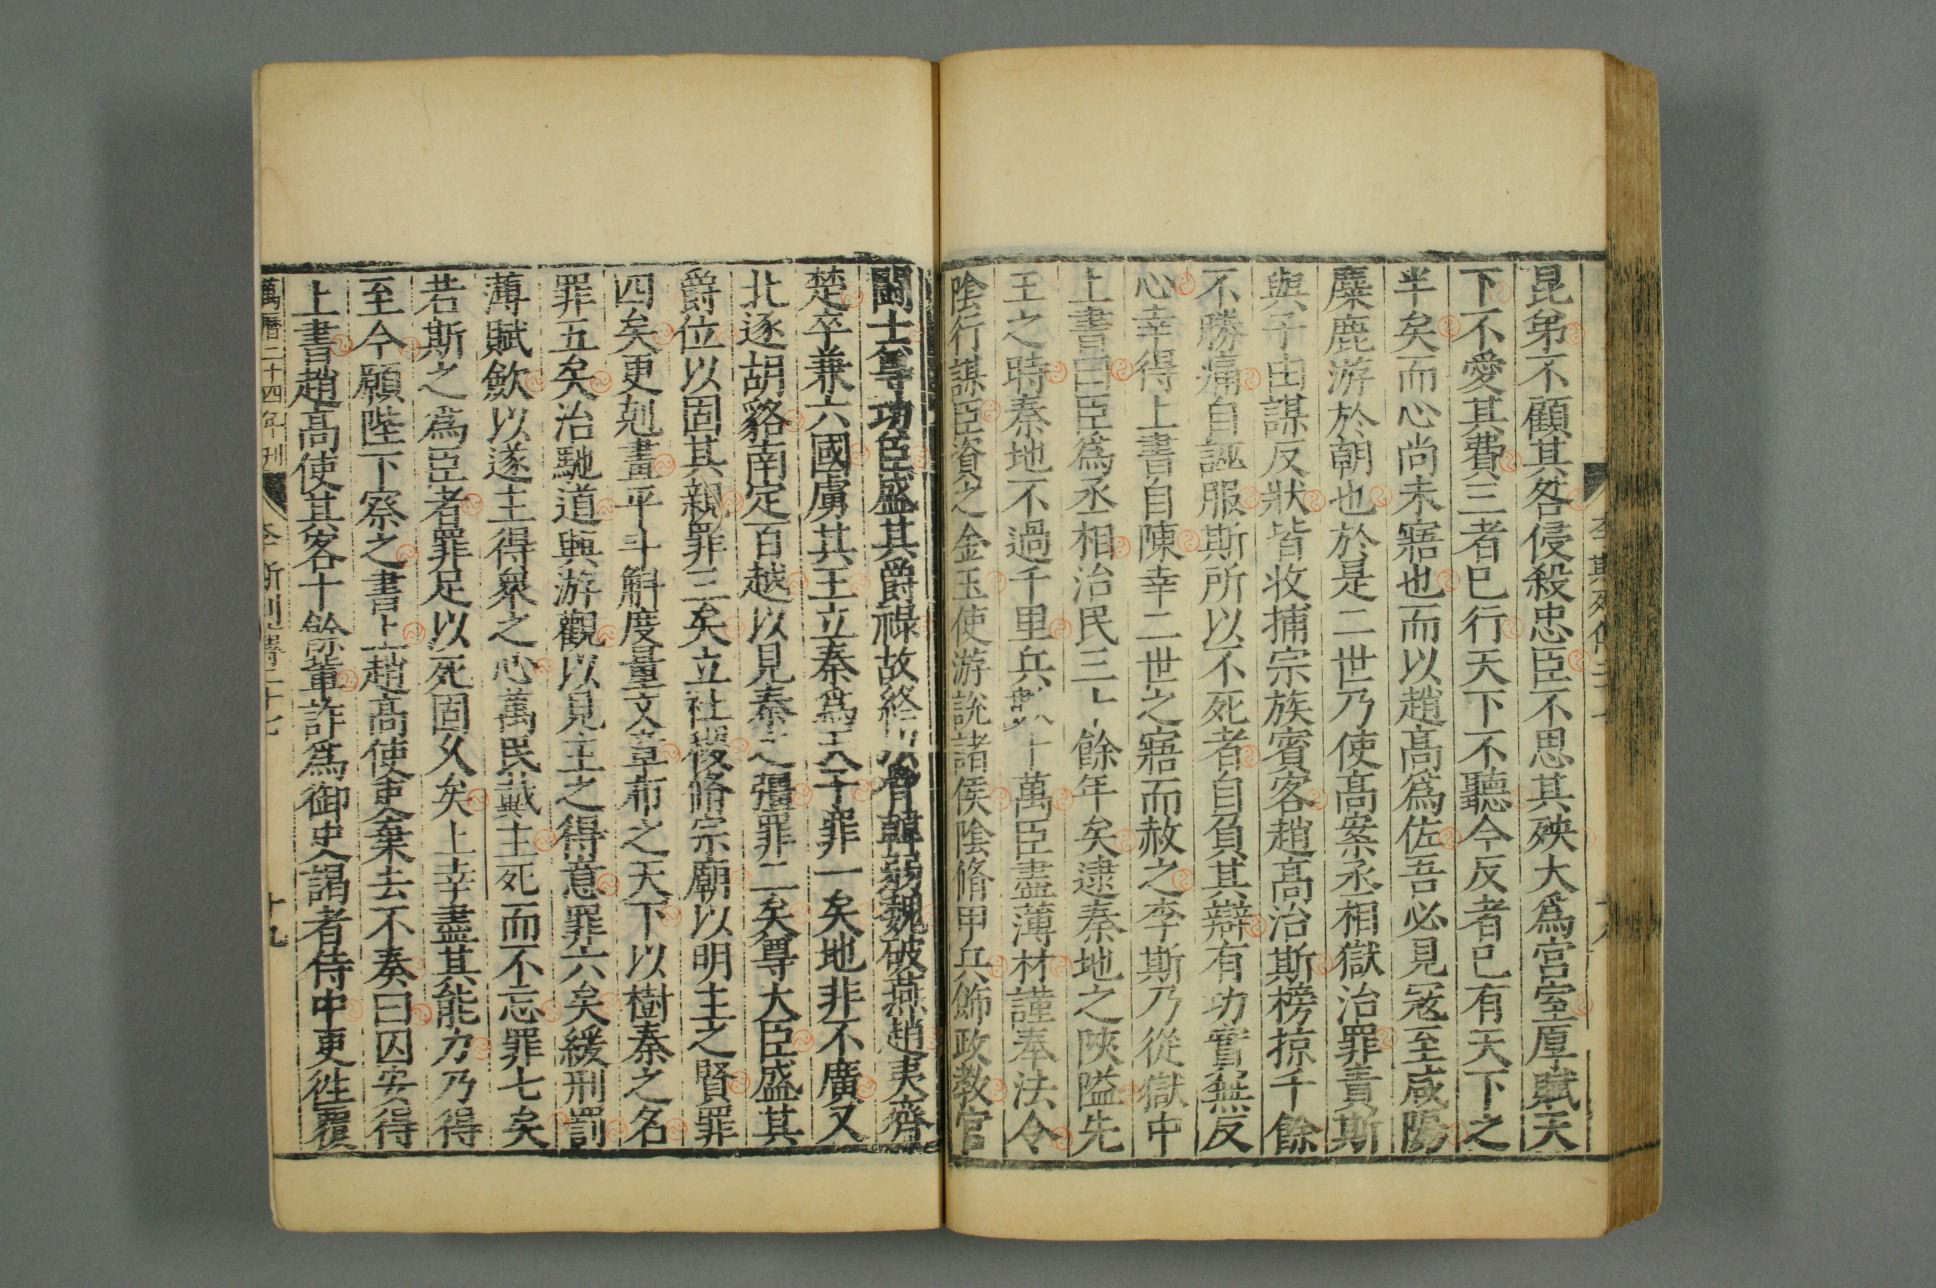 昆弟不顧其咎侵殺忠臣不思其殃大爲宮室厚賦天
下不愛其費三者已行天下不聽今反者已有天下之
半矣而心尚未寤也而以趙髙爲佐吾必見冦至咸陽
麋鹿游於朝也於是二世乃使髙案丞相獄治罪責斯
與子由謀反狀皆收捕宗族賓客趙髙治斯榜掠千餘
不勝痛自誣服斯所以不死者自負其辯有功實無反
心幸得上書自陳幸二世之寤而赦之李斯乃從獄中
上書曰臣爲丞相治民三十餘年矣逮秦地之陜隘先
王之時秦地不過千里兵數十萬臣盡薄材謹奉法令
隂行謀臣資之金玉使游說諸侯隂脩甲兵飾政教官
鬬士尊功臣盛其爵祿故終以脅韓弱魏破燕趙夷齊
楚卒兼六國虜其王立秦爲天子罪一矣地非不廣又
北逐胡貉南定百越以見秦之彊罪二矣尊大臣盛其
爵位以固其親罪三矣立社稷脩宗廟以明主之賢罪
四矣更剋畫平斗斛度量文章布之天下以樹秦之名
罪五矣治馳道興游觀以見主之得意罪六矣緩刑罰
薄賦斂以遂主得衆之心萬民戴主死而不忘罪七矣
若斯之爲臣者罪足以死固乆矣上幸盡其能力乃得
至今願陛下察之書上趙髙使吏棄去不奏曰囚安得
上書趙髙使其客十餘軰詐爲御史謁者侍中更徃覆
萬曆二十四年刊 李斯列傳二十七 十九